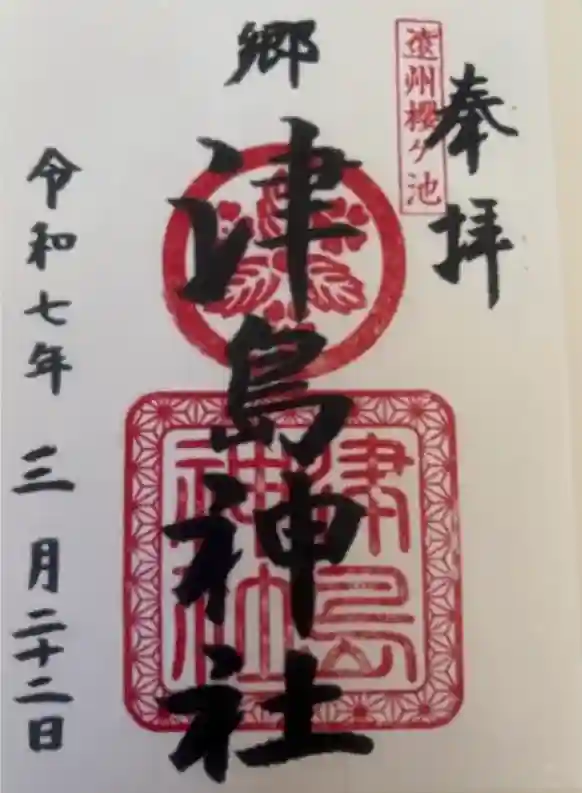 奉拝
遠州櫻ケ池
郷
津島神社
津島神社
令和七年 三 月二十二日